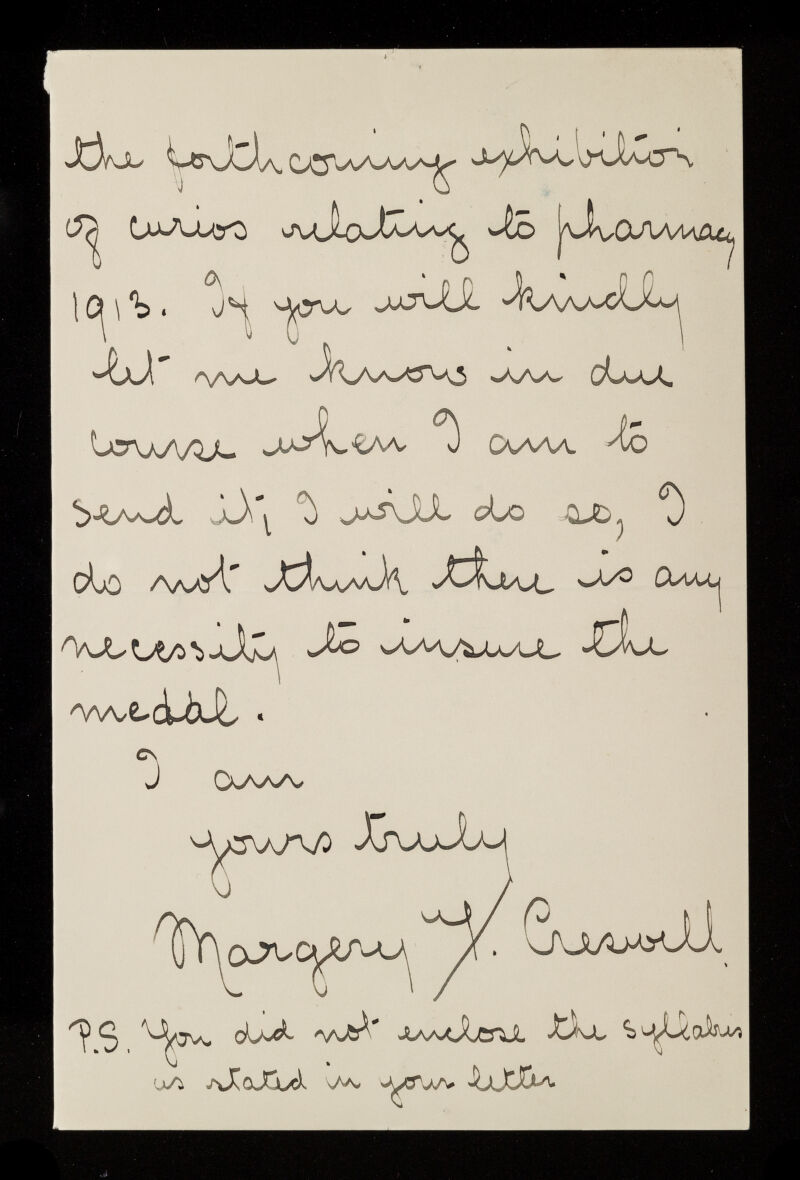 the forthcoming exhibition
of curios relating to pharmacy
1913. If you will kindly
let me know in due
course when I am to
send it, I will do so, I
do not think there is any
necessity to insure the
medal.
I am
yours truly
Margery F. Creswell.
P.S. You did not enclose the syllabus
as stated in your letter